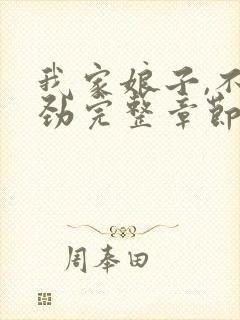 我家娘子,不
劲完整章節
周奉田